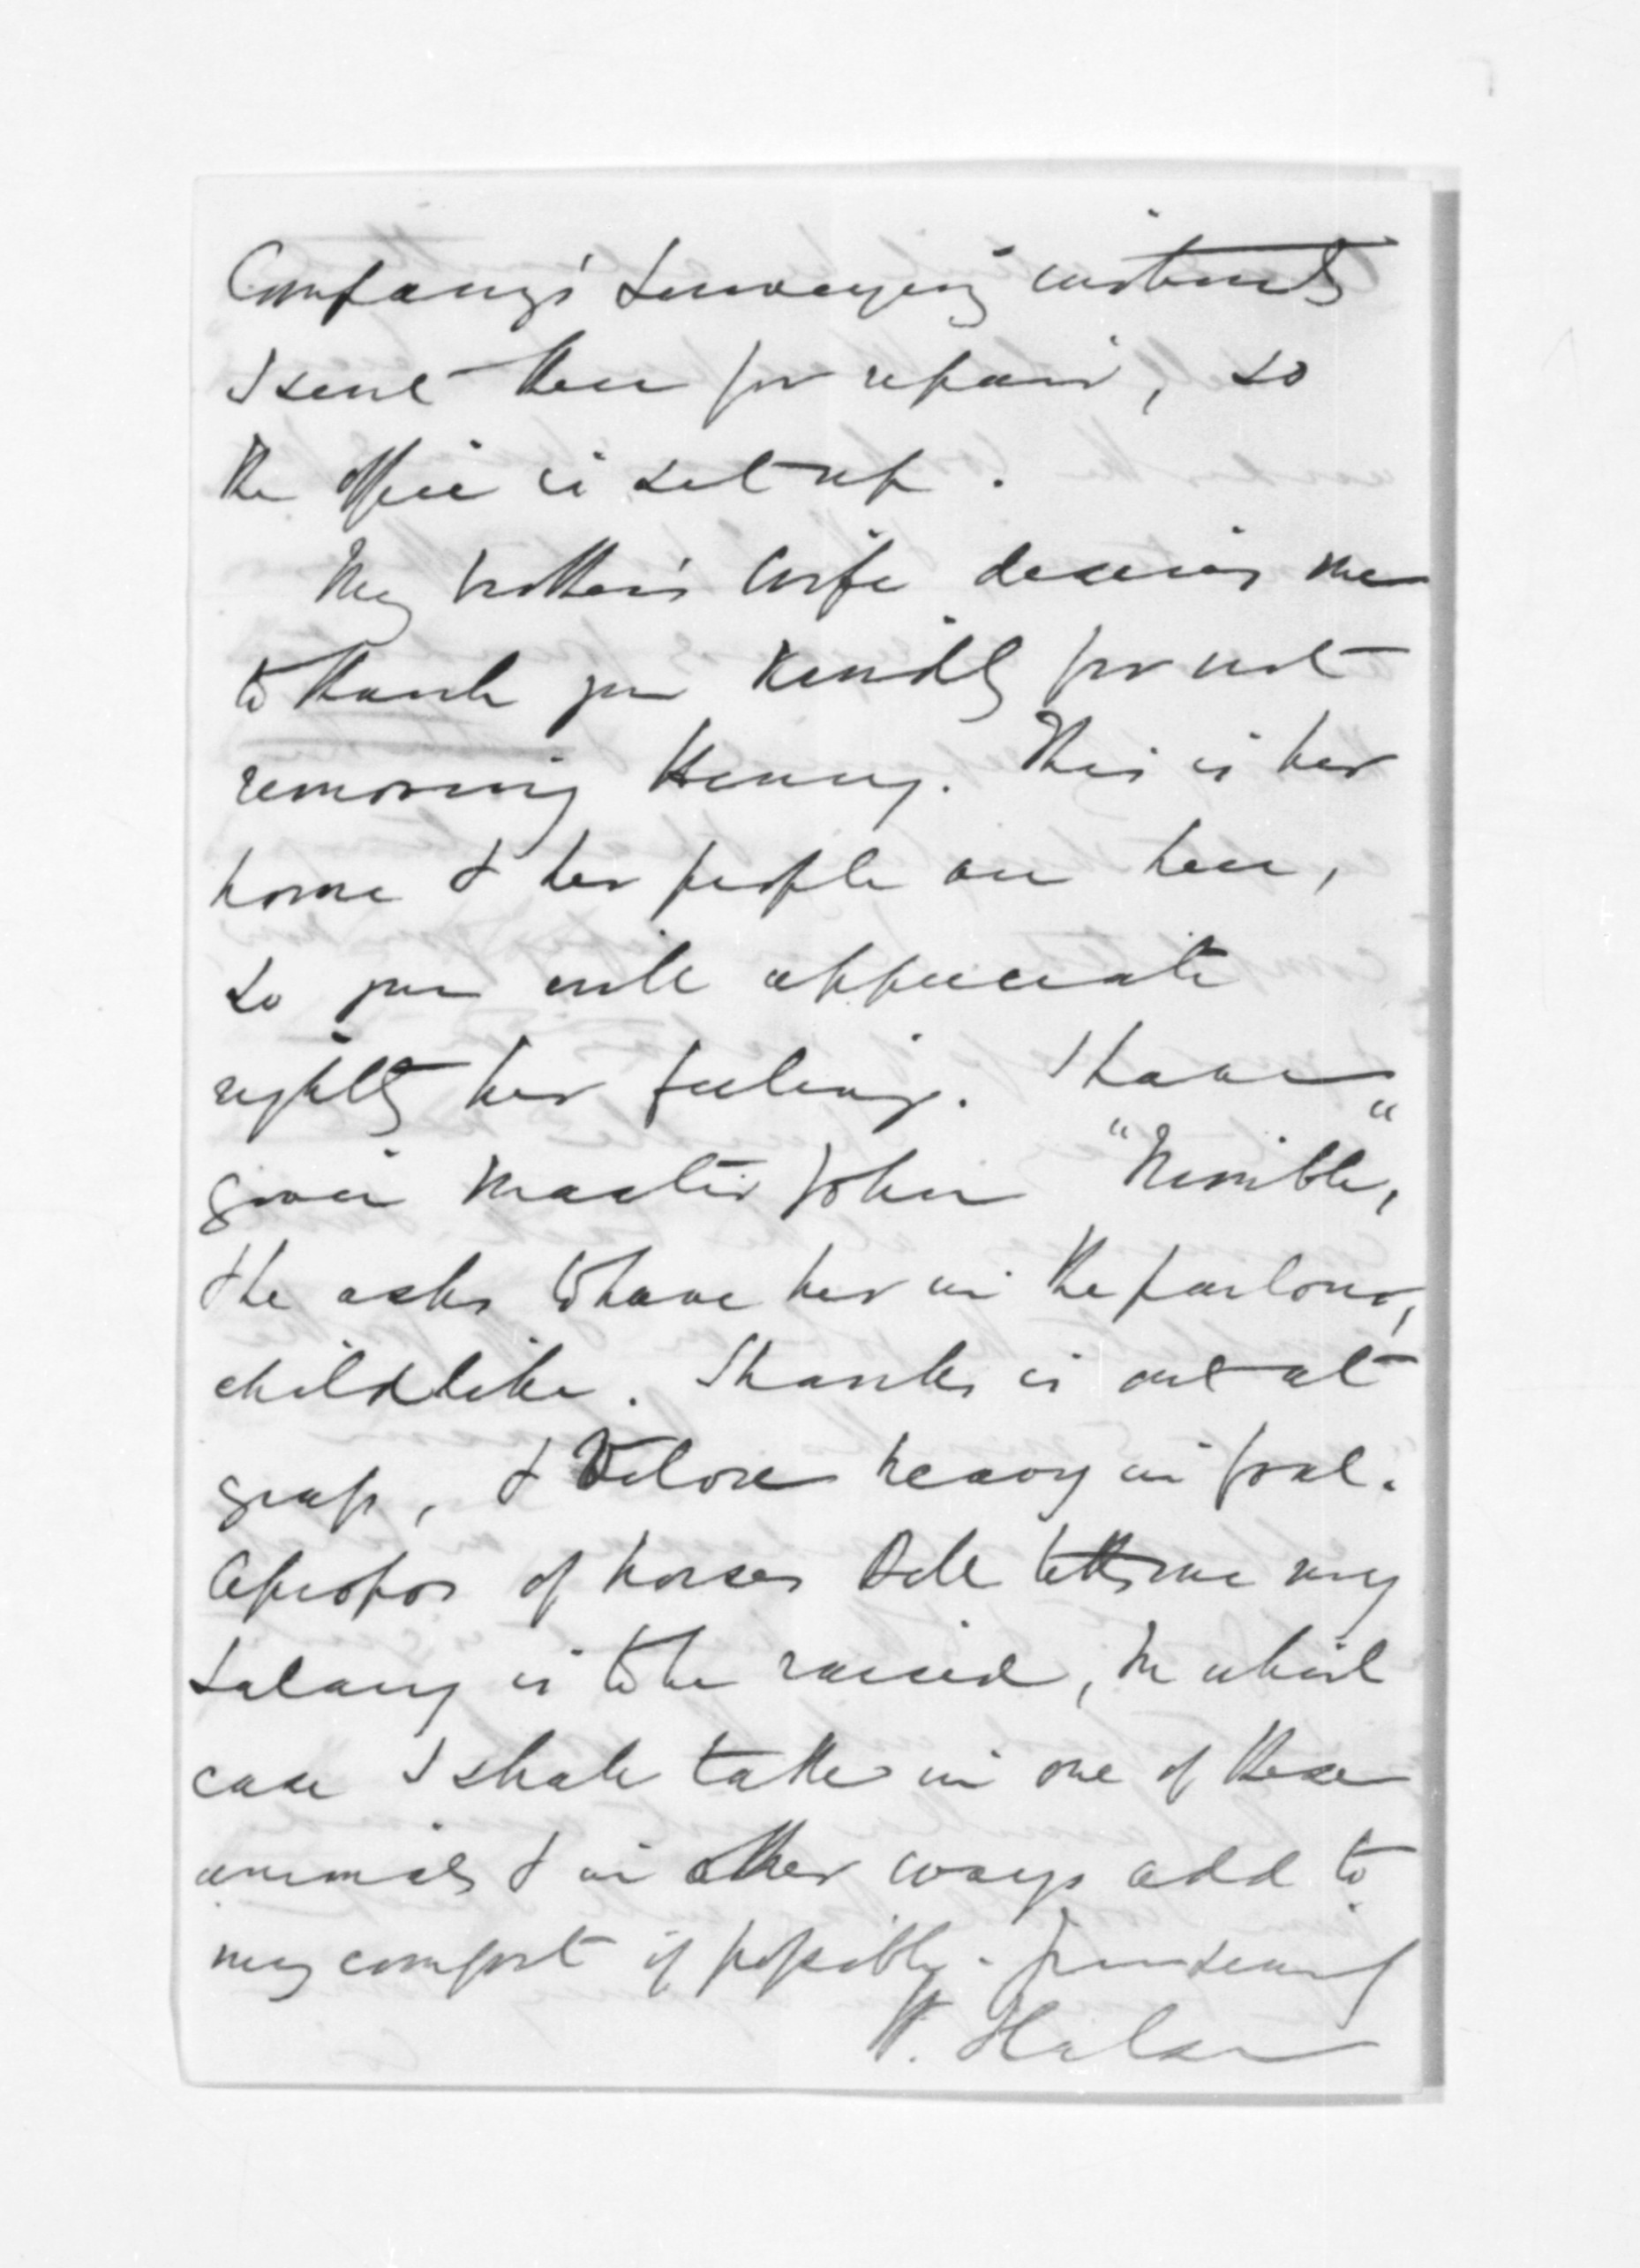 Company's surveying instmts
I sent them for repair, so
the office is set up.
My brother's wife desires me
to thank you kindly for not
removing Henry. This is her
home & her people are here,
so you will appreciate
rightly her feelings. I have
given Master John "Nimble,"
& he asks to have her in the parlour,
childlike. Shanks is out at
grass, & heavy in foal.
Apropos of horses tells me my
salary is to be raised, in which
case I shall take in one of these
animals & in other ways add to
my comfort if possible.